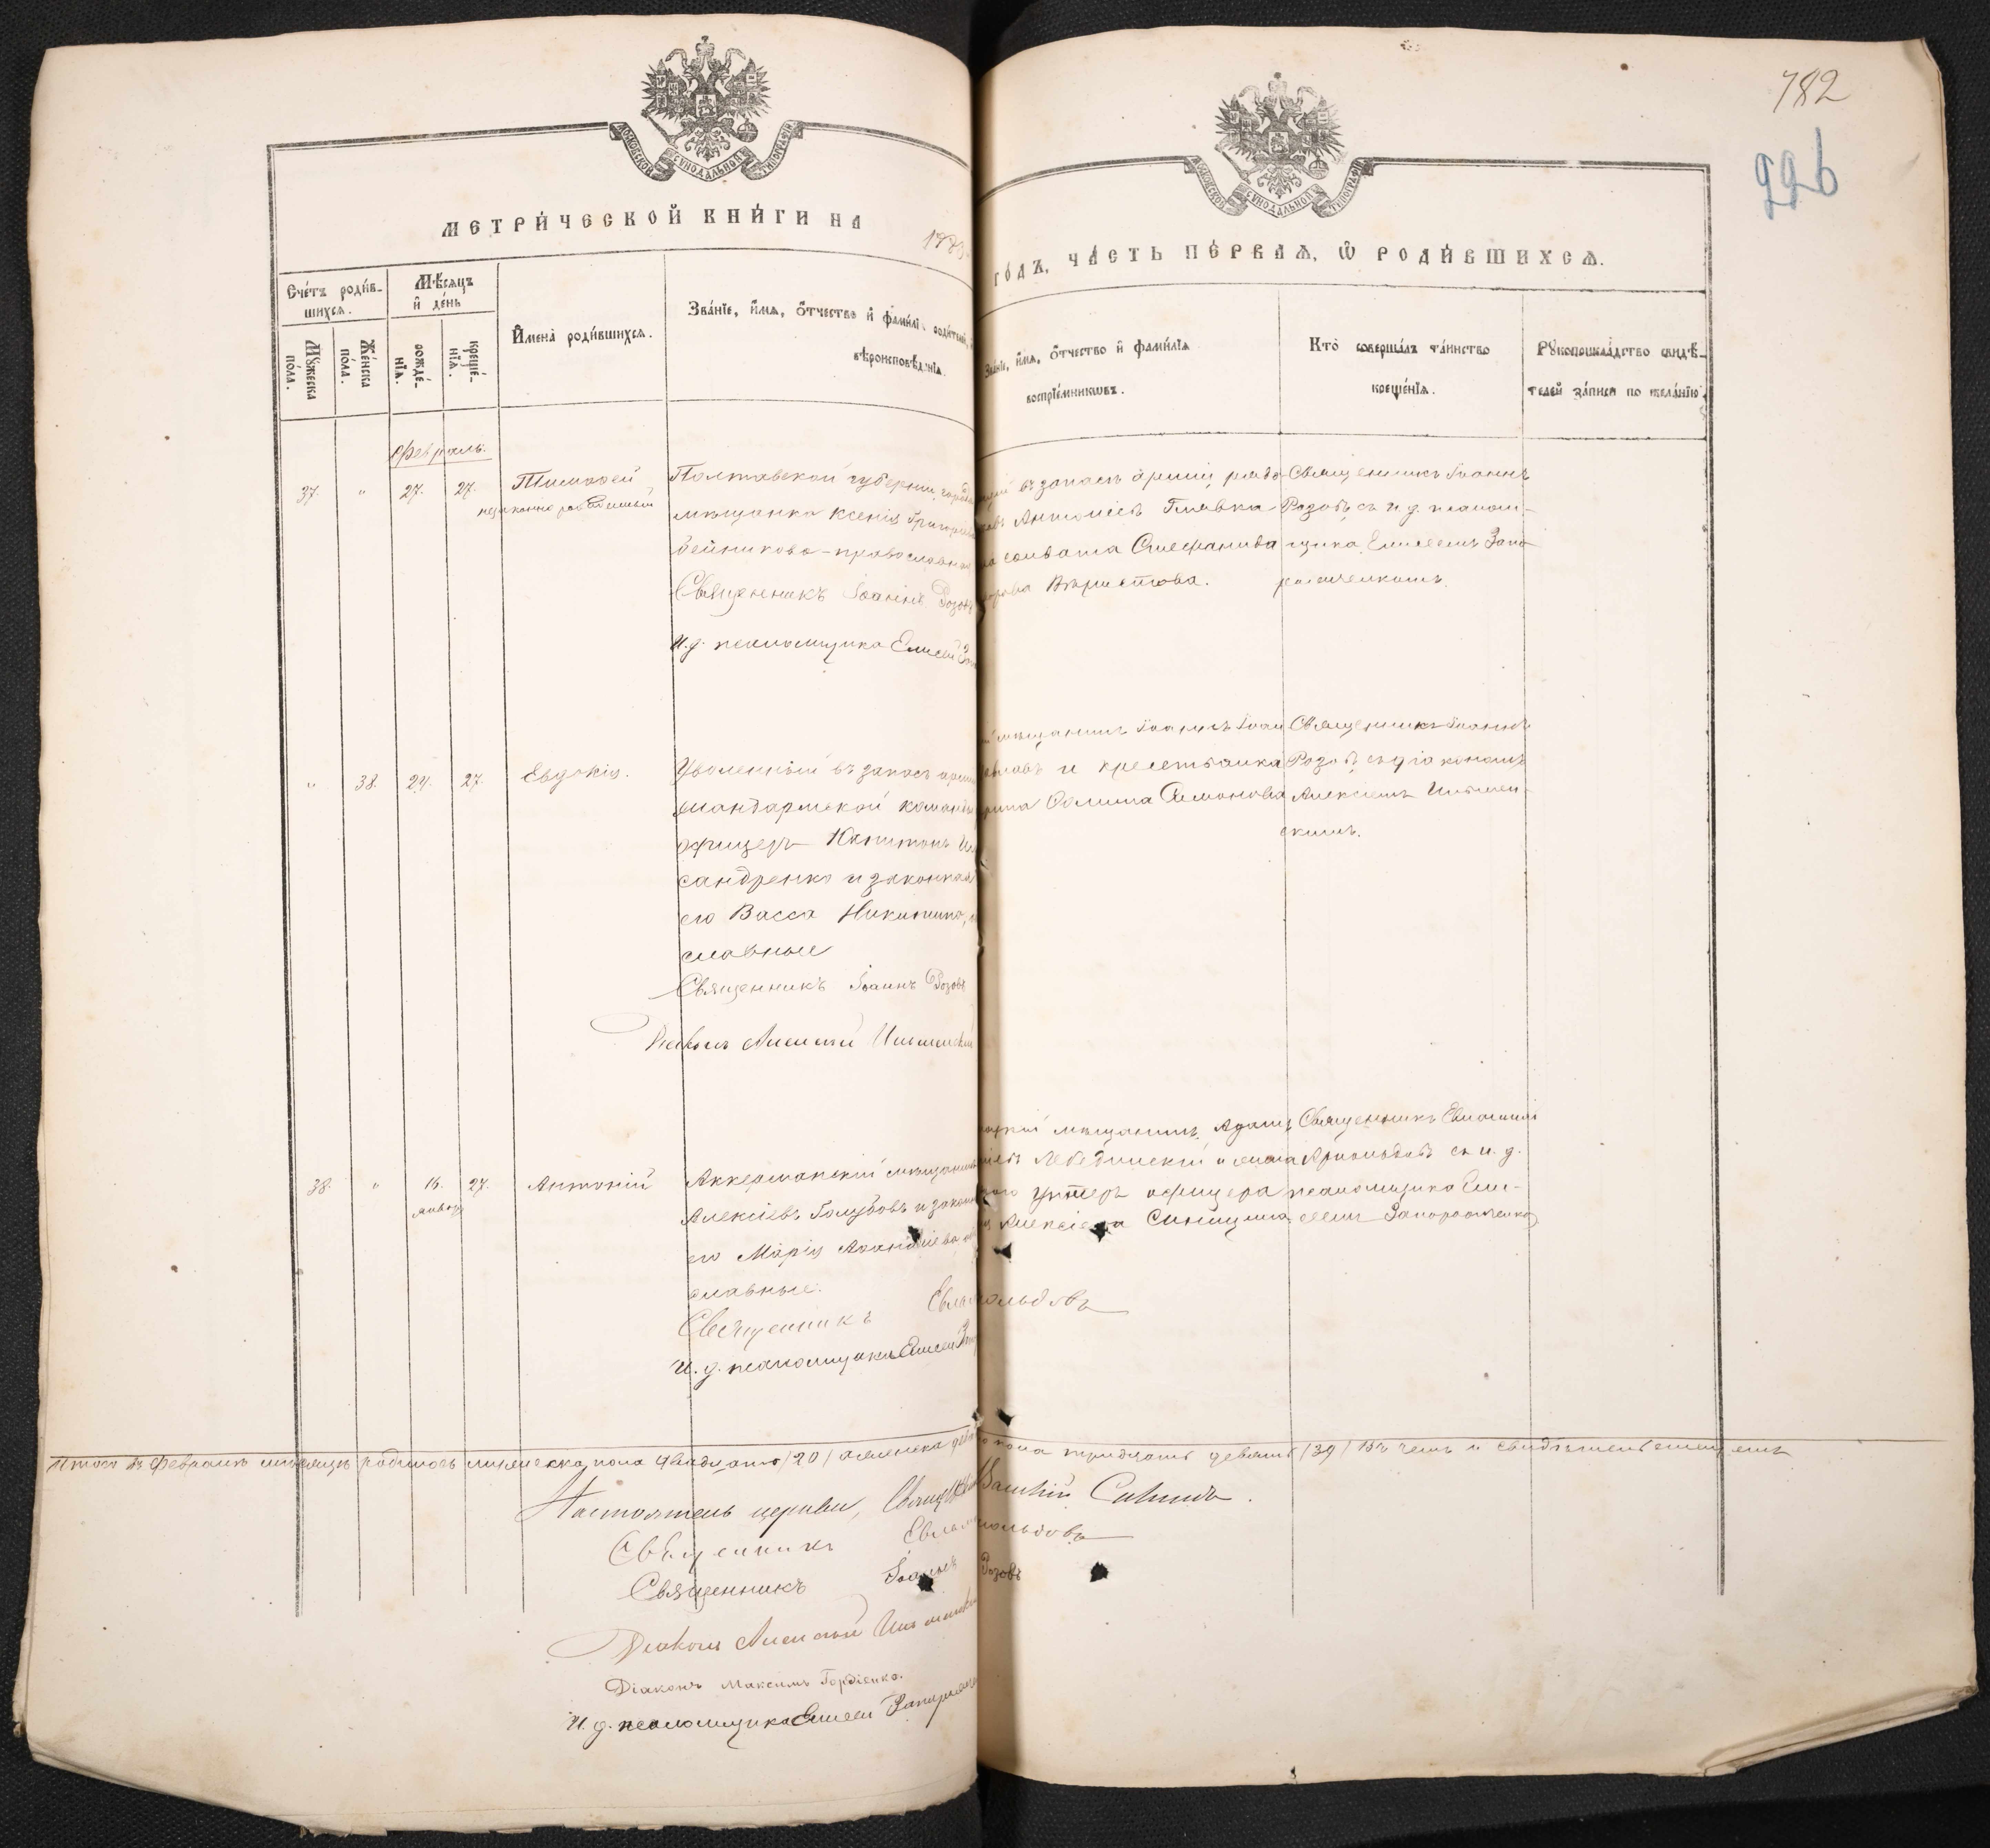 782
226
МОСКОВСКОЙ СУНОДАЛЬНОЙ ТИПОГРАФІИ
МОСКОВСКОЙ СУНОДАЛЬНОЙ ТИПОГРАФІИ
МЕТРИ́ЧЕСКОЙ КНИ́ГИ НА
ГО́ДЪ, ЧА́СТЬ ПЕ́РВАѦ, Ѡ РОДИ́ВШИХСѦ.
Сче́тъ роди́в-
шихсѧ.
Мꙋжеска по́ла.
Же́нска по́ла.
Мѣ́сѧцъ
и҆ де́нь
рожде́-
нїѧ.
креще́-
нїѧ.
И҆мена̀ роди́вшихсѧ.
Зва́нїе, и҆́мѧ, ѻ҆́тчество и҆ фами́лї роди́телей,
вѣроисповѣ́данїѧ.
Зва́нїе, и҆́мѧ, ѻ҆́тчество и҆ фами́лїѧ
воспрїе́мникѡвъ.
Кто̀ соверша́лъ та́инство
креще́нїѧ.
Рꙋкоприкла́дство свидѣ́-
телей за́писи по жела́нїю
Февраль.
37. " 27. 27. Тимофей
незаконнорожденный
Полтавской губерніи, города
мѣщанка Ксенія Григорьева
бейникова - православная
Священникъ Іоаннъ Розовъ
И. д. псаломщика Елисей
въ запасъ арміи рядо
Антоніевъ Главка
солдата Стефанида
Священникъ Іоаннъ
Розовъ съ и. д. псалом-
щика Елисеемъ Запо
рожченкомъ.
" 38. 24. 27. Евдокія.
Уволенный въ запасъ арміи
жандармской команды
офицеръ Капитонъ
сандренко и законная
его Васса Никитина,
славные
Священникъ Іоаннъ Розовъ
Діаконъ Алексій
мѣщанинъ Іоаннъ Іоан
и крестьянка
Симонова
Священникъ Іоаннъ
Розовъ съ діакономъ
Алексіемъ
скимъ.
38. " 16. 27. Антоній
январ
Аккерманскій мѣщанинъ
Алексіевъ Голубовъ и законная
его Марія Аѳанасіева
славные.
Священникъ
И. д. псаломщика Елисей
мѣщанинъ Адамъ
Лебединскій и жена
унтеръ офицера
Алексіева Синицина
Священникъ Евлампій
Арнольдовъ съ и. д.
псаломщика Ели-
сеемъ Запорожченко
Итого въ Февралѣ мѣсяцѣ родилось мужеска пола двадцать /20/ женска
пола тридцать девять /39/ въ чемъ и свидѣтельствуемъ
Настоятель церкви, Священникъ Василій
Священникъ Евлам нольдовъ
Священникъ Іоаннъ Розовъ
Діаконъ Алексій
Діаконъ Максимъ Гордіенко.
И. д. псаломщика Елисей Запорожченко